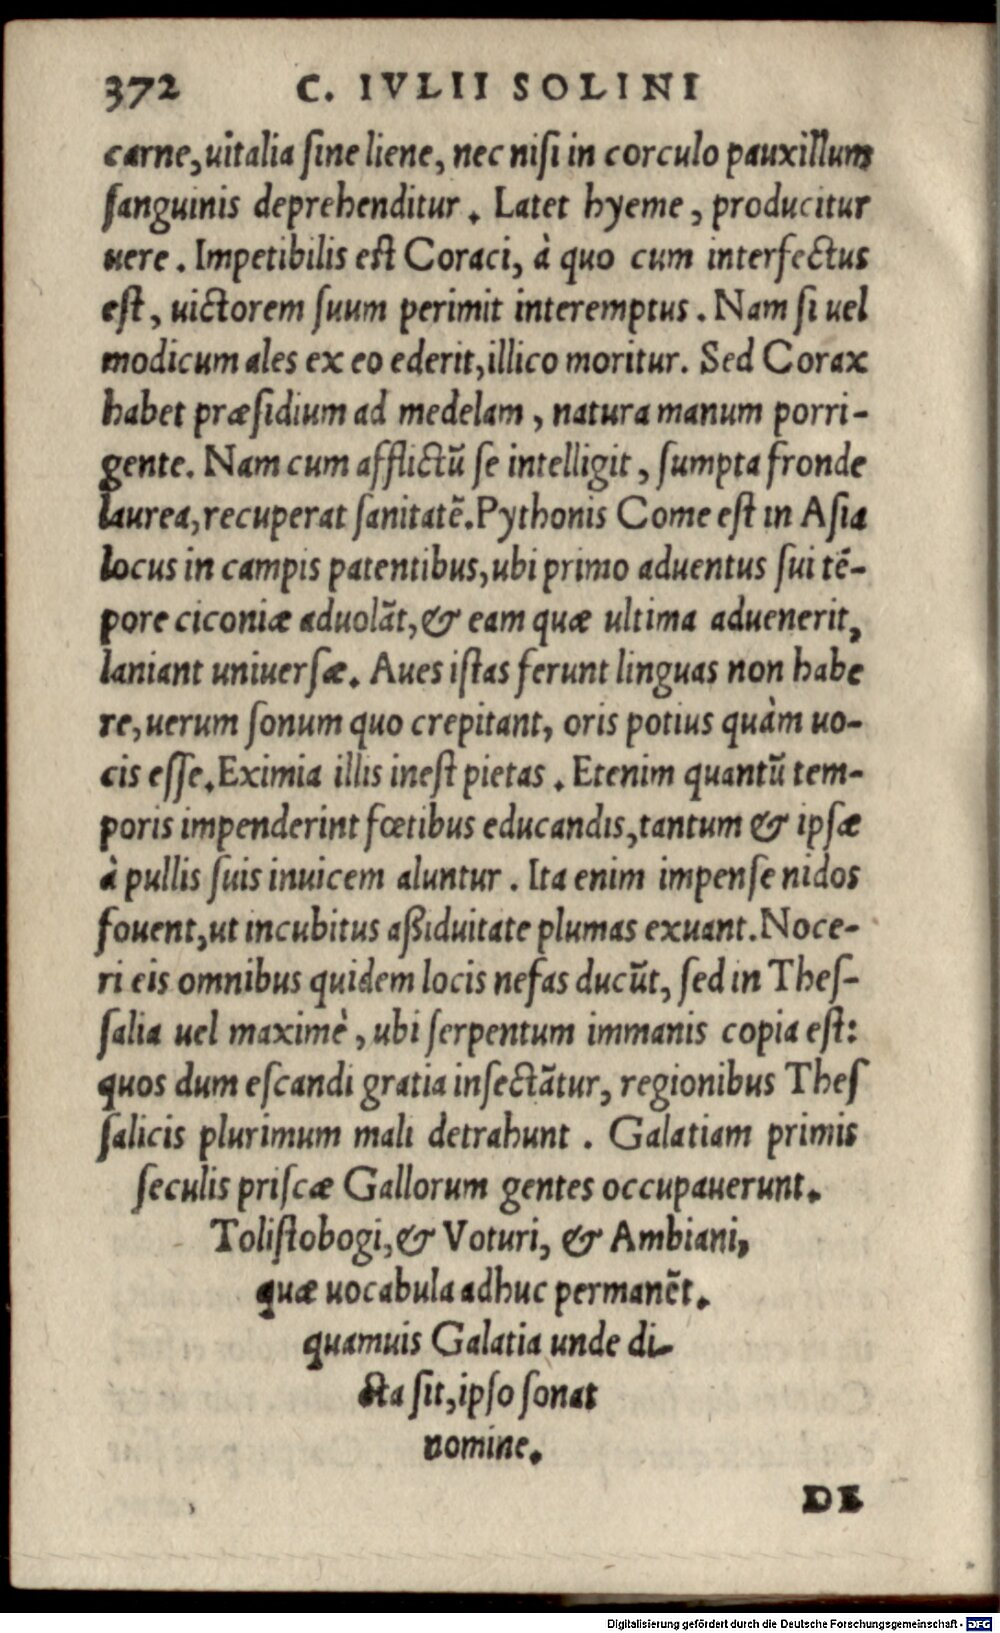 372 C. IVLII SOLINI
carne, uitalia ſine liene, nec niſi in corculo pauxillum
ſanguinis deprehenditur. Latet hyeme, producitur
uere. Impetibilis eſt Coraci, à quo cum interfectus
eſt, uictorem ſuum perimit interemptus. Nam ſi uel
modicum ales ex eo ederit, illico moritur. Sed Corax
habet præſidium ad medelam, natura manum porri-
gente. Nam cum afflictũ ſe intelligit, ſumpta fronde
laurea, recuperat ſanitatẽ. Pythonis Come eſt in Aſia
locus in campis patentibus, ubi primo aduentus ſui tẽ-
pore ciconiæ aduolãt, & eam quæ ultima aduenerit,
laniant uniuerſæ. Aues iſtas ferunt linguas non habe
re, uerum ſonum quo crepitant, oris potius quàm uo-
cis eſſe. Eximia illis ineſt pietas. Etenim quantũ tem-
poris impenderint fœtibus educandis, tantum & ipſæ
à pullis ſuis inuicem aluntur. Ita enim impenſe nidos
fouent, ut incubitus aßiduitate plumas exuant. Noce-
ri eis omnibus quidem locis nefas ducũt, ſed in Theſ-
ſalia uel maximè, ubi ſerpentum immanis copia eſt:
quos dum eſcandi gratia inſectãtur, regionibus Theſ
ſalicis plurimum mali detrahunt. Galatiam primis
ſeculis priſcæ Gallorum gentes occupauerunt.
Toliſtobogi, & Voturi, & Ambiani,
quæ uocabula adhuc permanẽt.
quamuis Galatia unde di-
cta ſit, ipſo ſonat
nomine.
DE
Digitalisierung gefördert durch die Deutsche Forschungsgemeinschaft - DFG